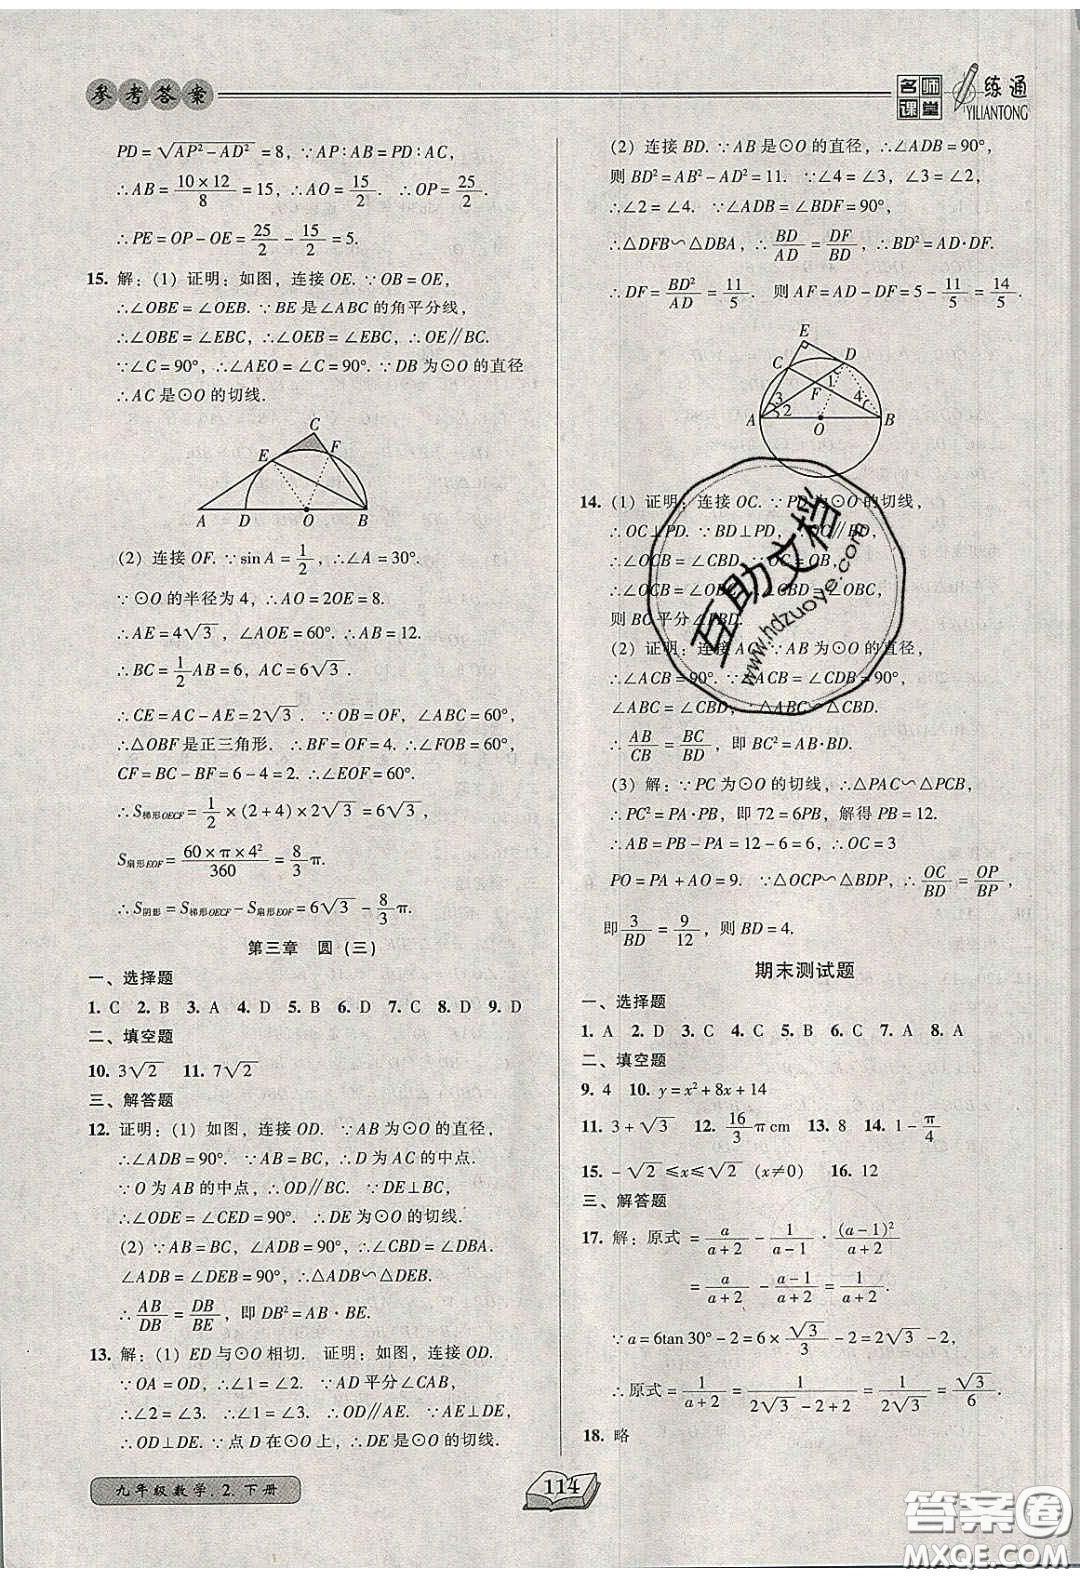 参考答案
名师课堂
一练通
YILIANTONG
PD=√(AP²-AD²)=8, ∵AP∶AB=PD∶AC,
∴AB=(10×12)/8=15, ∴AO=15/2. ∴OP=25/2.
∴PE=OP-OE=25/2-15/2=5.
15. 解: (1) 证明: 如图, 连接OE. ∵OB=OE,
∴∠OBE=∠OEB. ∵BE是∠ABC的角平分线,
∴∠OBE=∠EBC, ∴∠OEB=∠EBC, ∴OE∥BC.
∵∠C=90°, ∴∠AEO=∠C=90°. ∵DB为⊙O的直径
∴AC是⊙O的切线.
C
E F
A D O B
(2) 连接OF. ∵sinA=1/2, ∴∠A=30°.
∵⊙O的半径为4, ∴AO=2OE=8.
∴AE=4√3, ∠AOE=60°. ∴AB=12.
∴BC=1/2AB=6, AC=6√3.
∴CE=AC-AE=2√3. ∵OB=OF, ∠ABC=60°,
∴△OBF是正三角形. ∴BF=OF=4. ∴∠FOB=60°,
CF=BC-BF=6-4=2. ∴∠EOF=60°.
∴S梯形OECF=1/2×(2+4)×2√3=6√3,
S扇形EOF=(60×π×4²)/360=8/3π.
∴S阴影=S梯形OECF-S扇形EOF=6√3-8/3π.
第三章 圆 (三)
一、选择题
1. C 2. B 3. A 4. D 5. B 6. D 7. C 8. D 9. D
二、填空题
10. 3√2 11. 7√2
三、解答题
12. 证明: (1) 如图, 连接OD. ∵AB为⊙O的直径,
∴∠ADB=90°. ∵AB=BC, ∴D为AC的中点.
∵O为AB的中点, ∴OD∥BC. ∵DE⊥BC,
∴∠ODE=∠CED=90°. ∴DE为⊙O的切线.
(2) ∵AB=BC, ∠ADB=90°, ∴∠CBD=∠DBA.
∠ADB=∠DEB=90°, ∴△ADB∽△DEB.
∴AB/DB=DB/BE, 即DB²=AB·BE.
13. 解: (1) ED与⊙O相切. 证明: 如图, 连接OD.
∵OA=OD, ∴∠1=∠2. ∵AD平分∠CAB,
∴∠2=∠3. ∴∠1=∠3. ∴OD∥AE. ∵AE⊥DE,
∴OD⊥DE. ∵点D在⊙O上, ∴DE是⊙O的切线.
(2) 连接BD. ∵AB是⊙O的直径, ∴∠ADB=90°,
则BD²=AB²-AD²=11. ∵∠4=∠3, ∠3=∠2,
∴∠2=∠4. ∵∠ADB=∠BDF=90°,
∴△DFB∽△DBA, ∴BD/AD=DF/BD. ∴BD²=AD·DF.
∴DF=BD²/AD=11/5. 则AF=AD-DF=5-11/5=14/5.
E
C D
1
F
3 4
A 2 O B
14. (1) 证明: 连接OC. ∵PD为⊙O的切线,
∴OC⊥PD. ∵BD⊥PD, ∴OC∥BD.
∴∠OCB=∠CBD. ∵OC=OB,
∴∠OCB=∠OBC. ∴∠OBD=∠OBC,
则BC平分∠PBD.
(2) 证明: 连接AC. ∵AB为⊙O的直径,
∴∠ACB=90°. ∵∠ACB=∠CDB=90°,
∠ABC=∠CBD, ∴△ABC∽△CBD.
∴AB/CB=BC/BD, 即BC²=AB·BD.
(3) 解: ∵PC为⊙O的切线, ∴△PAC∽△PCB,
∴PC²=PA·PB, 即72=6PB, 解得PB=12.
∴AB=PB-PA=12-6=6, ∴OC=3
PO=PA+AO=9. ∵△OCP∽△BDP, ∴OC/BD=OP/BP,
即3/BD=9/12, 则BD=4.
期末测试题
一、选择题
1. A 2. D 3. C 4. C 5. B 6. C 7. A 8. A
二、填空题
9. 4 10. y=x²+8x+14
11. 3+√3 12. 16/3π cm 13. 8 14. 1-π/4
15. -√2≤x≤√2 (x≠0) 16. 12
三、解答题
17. 解: 原式=a/(a+2)-1/(a-1)·(a-1)²/(a+2)
=a/(a+2)-(a-1)/(a+2)=1/(a+2).
∵a=6tan30°-2=6×√3/3-2=2√3-2,
∴原式=1/(a+2)=1/(2√3-2+2)=1/(2√3)=√3/6.
18. 略
九年级数学.2.下册
114
互助文档
www.hdzuoye.com
答案圈
MXQE.COM